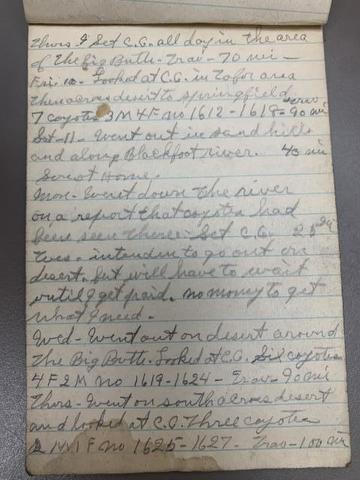 Thurs. 9 Set C.G. all day in the area
of the big Butte - Trav - 70 mi -
Fri. 10 - Looked at C.G. in Tafor area
then across desert to Springfield
Trav
7 coyotes 3M 4F no 1612-1618 - 90 mi
Sat - 11 - Went out in sand hills
and along Blackfoot river. 43 mi
Sun at Home.
Mon - Went down the river
on a report that coyotes had
been seen there - Set C.G. 25
Tues. intended to go out on
desert. but will have to wait
until I get paid. no money to get
what I need.
Wed - Went out on desert around
The Big Butte. Looked at C.G. Six coyotes
4F 2M no 1619-1624 - Trav - 90 mi
Thurs - Went on south across desert
and looked at C.G. Three coyotes
2M 1F no 1625-1627 - Trav - 100 mi